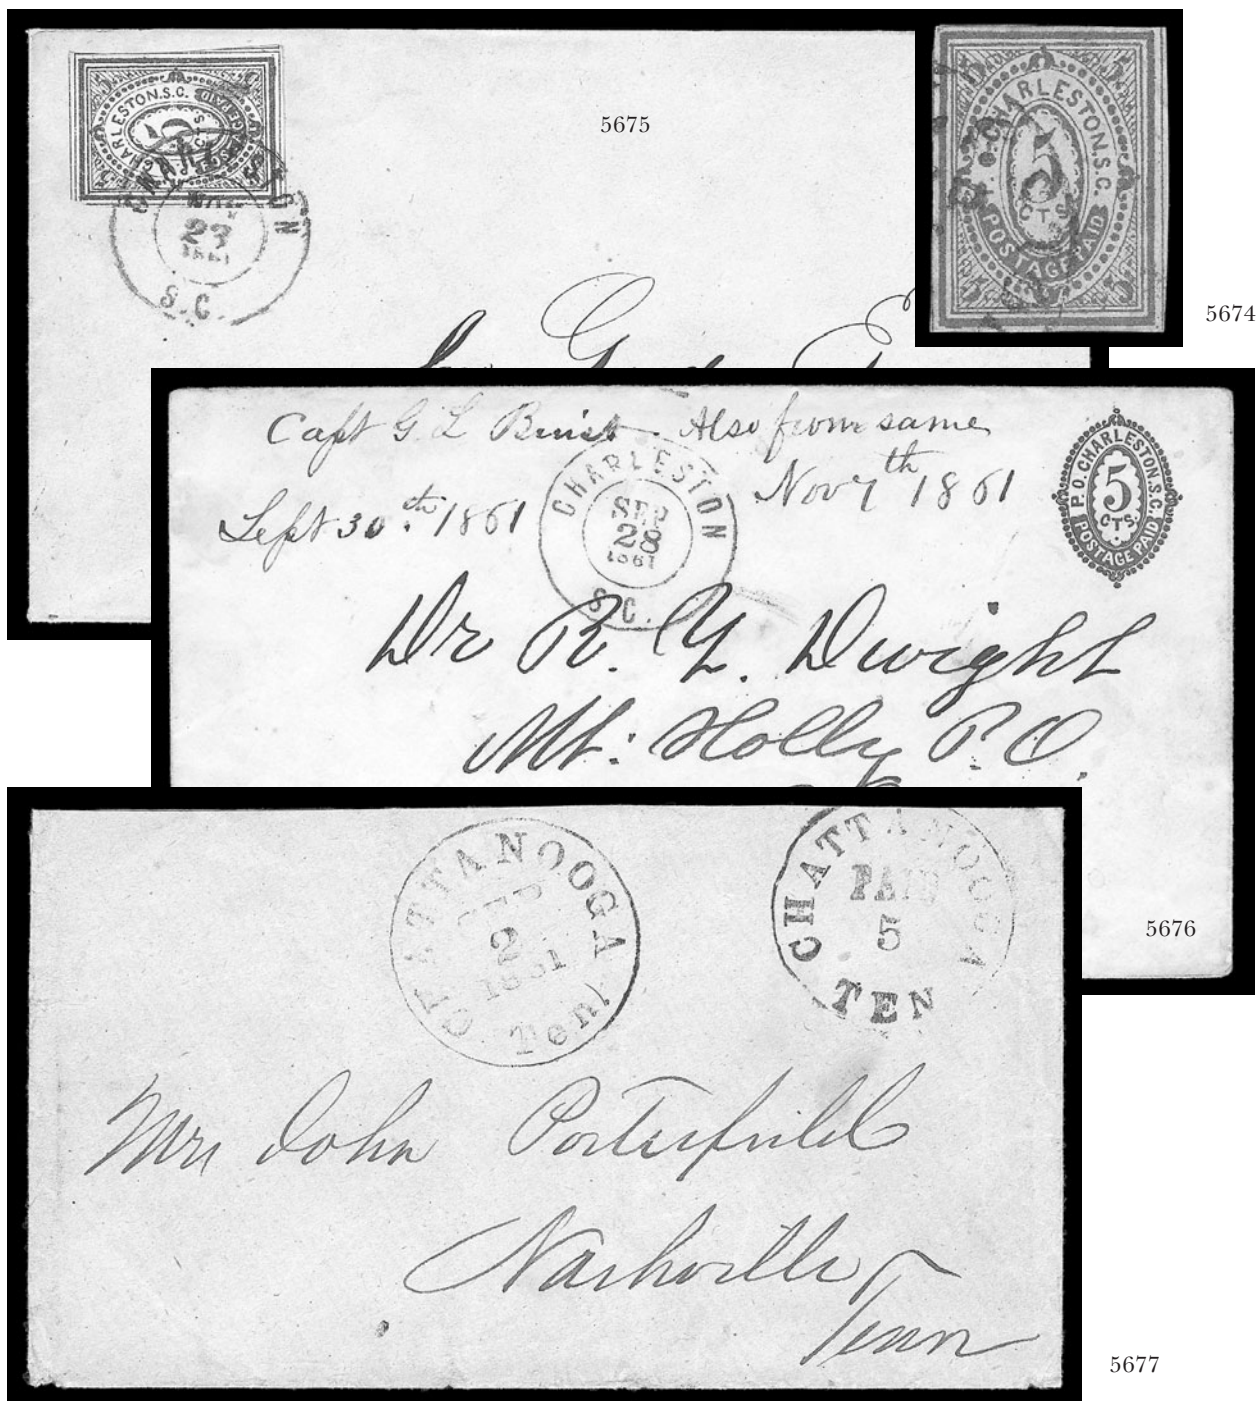 5675
CHARLESTON.S.C.
POSTAGE PAID
5
CTS
CHARLESTON
NOV
27
1861
S.C.
5 5
CHARLESTON.S.C.
5
CTS
POSTAGE PAID
5 5
5674
Capt G. L Buist. Also from same
Nov 7th 1861
Sept 30th. 1861
CHARLESTON
SEP
28
1861
S.C.
P.O. CHARLESTON.S.C.
5
CTS.
POSTAGE PAID
Dr R. Y. Dwight
Mt: Holly P.O.
5676
CHATTANOOGA
SEP
2
1861
Ten.
CHATTANOOGA
PAID
5
TEN
Mrs John Porterfield
Nashville
Tenn
5677